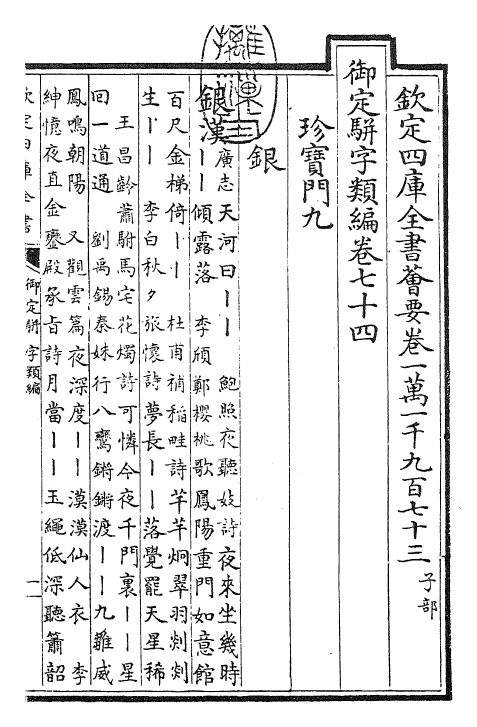 欽定四庫全書薈要卷一萬一千九百七十三 子部
御定駢字類編卷七十四
珍寶門九
銀
銀漢 廣志天河曰〡〡 鮑照夜聽妓詩夜來坐幾時
〡〡傾露落 李頎鄭櫻桃歌鳳陽重門如意館
百尺金梯倚〡〡 杜甫補稻畦詩芊芊炯翠羽剡剡
生〡〡 李白秋夕旅懷詩夢長〡〡落覺罷天星稀
王昌齡蕭駙馬宅花燭詩可憐今夜千門裏〡〡星
回一道通 劉禹錫泰姝行八鸞鏘鏘渡〡〡九雛威
鳳鳴朝陽 又觀雲篇夜深度〡〡漠漠仙人衣 李
紳憶夜直金鑾殿承旨詩月當〡〡玉繩低深聽簫韶
欽定四庫全書
御定駢字類編
一